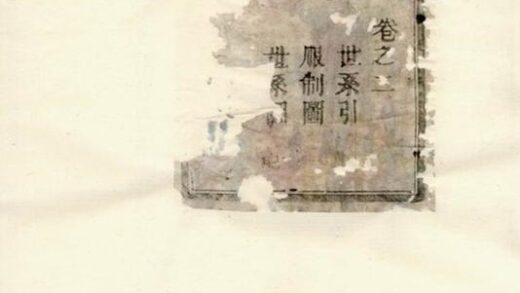 卷之二
世系引
服制圖
世系圖